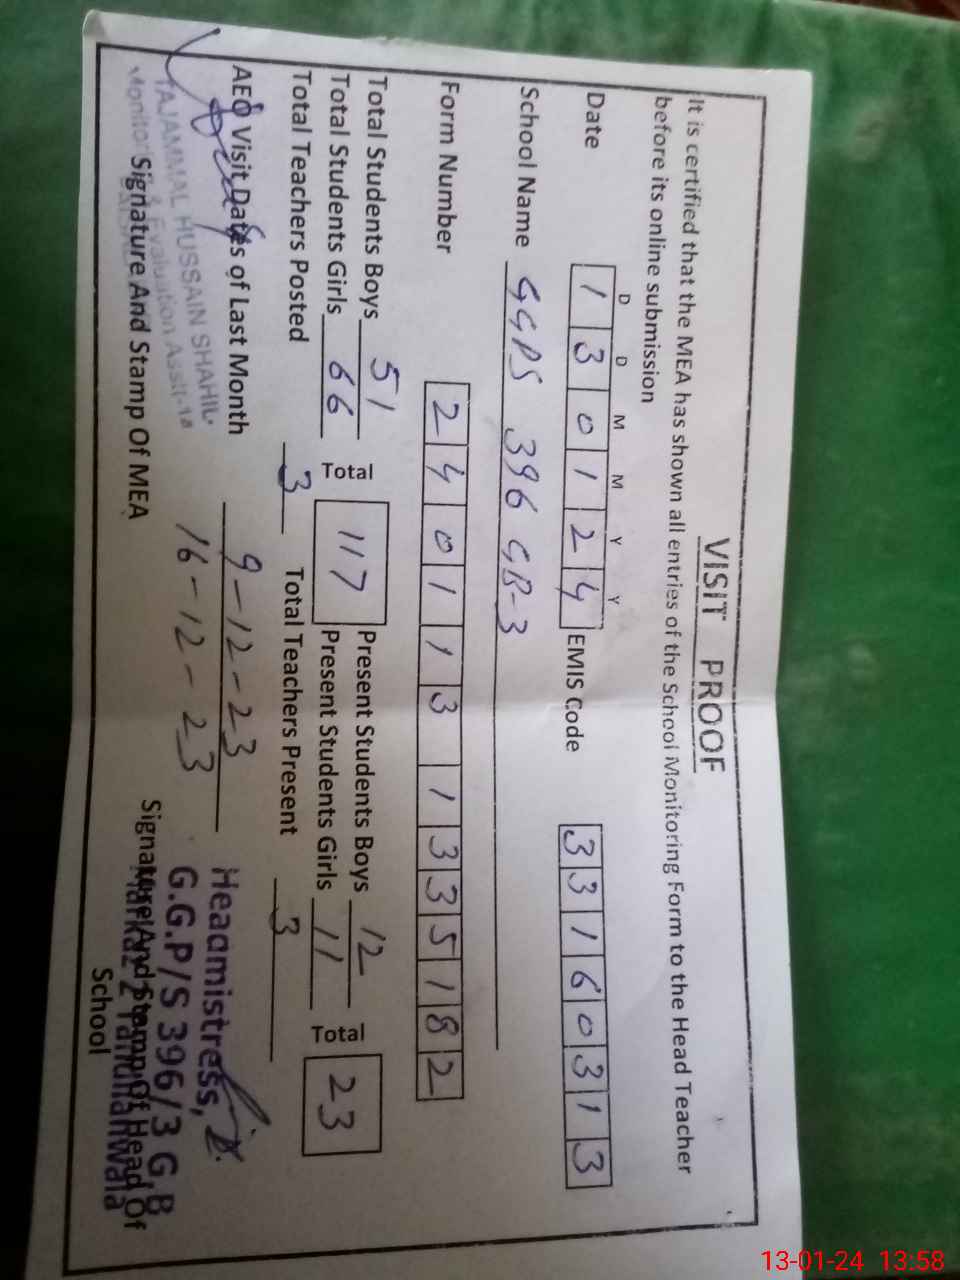 VISIT PROOF
It is certified that the MEA has shown all entries of the School Monitoring Form to the Head Teacher
before its online submission
D D M M Y Y
Date 1 3 0 1 2 4 EMIS Code 3 3 1 6 0 3 1 3
School Name GGPS 396 GB-3
Form Number 2 4 0 1 1 3 1 3 3 5 1 8 2
Total Students Boys 51 Present Students Boys 12
Total Students Girls 66 Total 117 Present Students Girls 11 Total 23
Total Teachers Posted 3 Total Teachers Present 3
AEO Visit Dates of Last Month 9-12-23
16-12-23
TAJAMMAL HUSSAIN SHAHID
Monitoring & Evaluation Asstt-18
Signature And Stamp Of MEA
Headmistress,
G.G.P/S 396/3 G.B
Markaz 2 Tandlianwala
Signature And Stamp Of Head Of
School
13-01-24 13:58